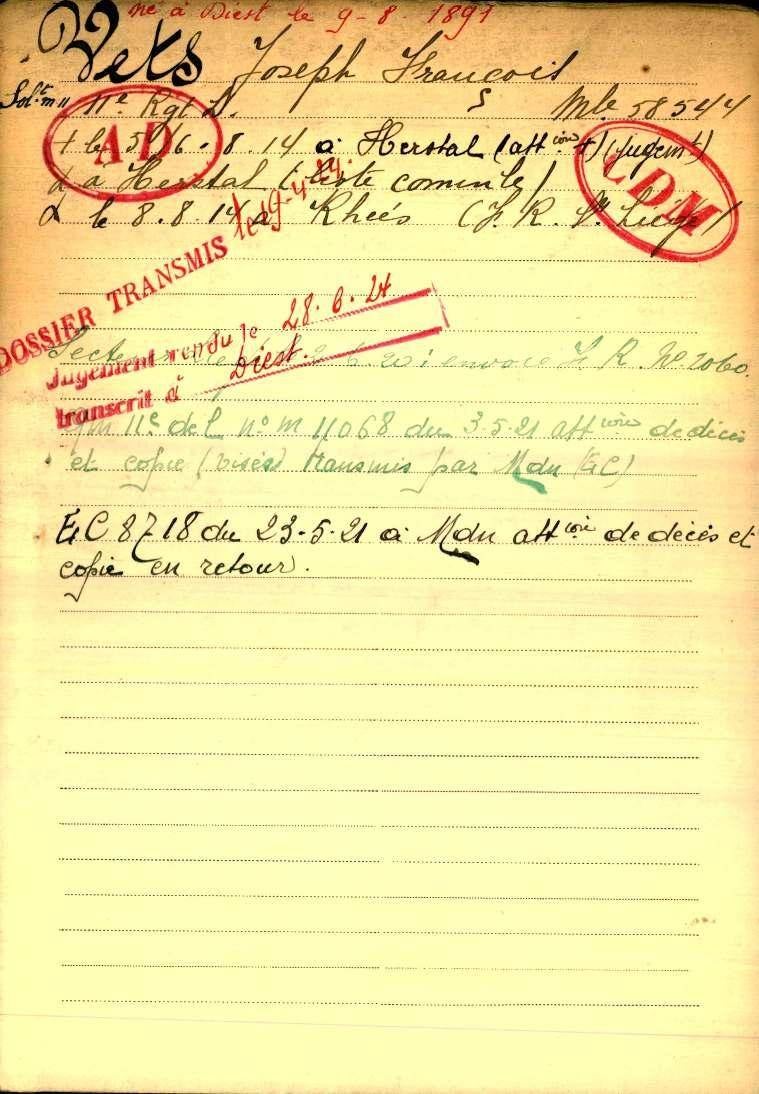 né à Diest le 9-8. 1891
Vets Joseph François
Sol. m 11e Rgt L. S Mle 58544
+ le 5/6-8.14 à Herstal (attion +) (jugemt)
AD
LDM
à Herstal (liste comunle)
le 8.8.14 à Rhées (F. R. Pr Liége)
DOSSIER TRANSMIS le 19-4-24.
Jugement rendu le 28.6.24
transcrit à Diest.
2.6.20 envoie F R. No 2060.
11e del no m 11068 du 3.5.21 attion de décès
et copie (visés) transmis par Mdn (EC)
EC 8718 du 23-5-21 à Mdn attion de décès et
copie en retour.